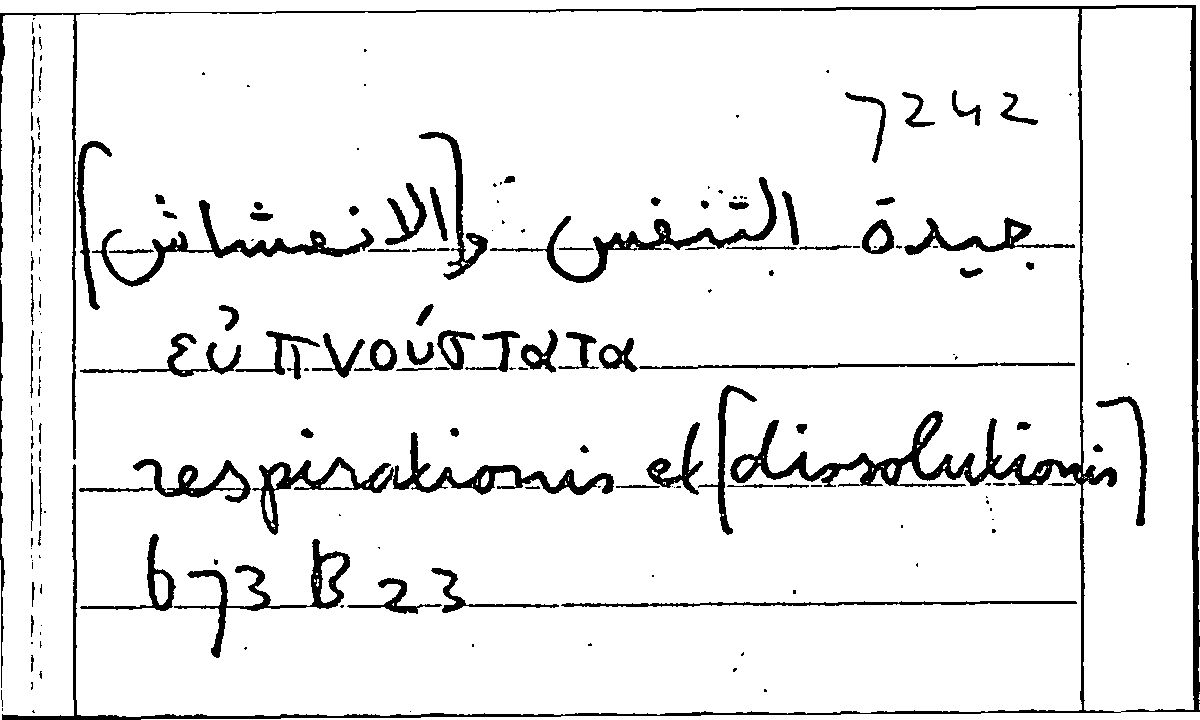 7242
جيدة التنفس و[الانعشاش]
εὐπνούστατα
respirationis et [dissolutionis]
673 B 23